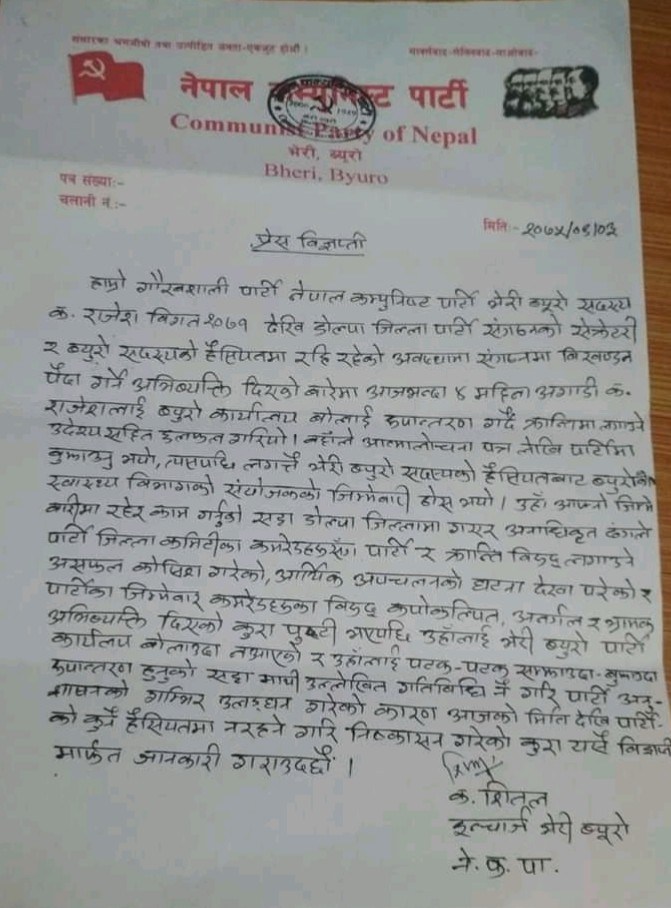 संसारका श्रमजीवी तथा उत्पीडित जनता-एकजुट होऔं !
मार्क्सवाद-लेनिनवाद-माओवाद-
नेपाल कम्युनिष्ट पार्टी
Communist Party of Nepal
भेरी, ब्युरो
Bheri, Byuro
पत्र संख्या:-
चलानी नं.:-
मिति:- २०७५/०९/०३
प्रेस विज्ञप्ती
हाम्रो गौरबशाली पार्टी नेपाल कम्युनिष्ट पार्टी भेरी ब्युरो सदस्य
क. राजेश विगत २०७१ देखि डोल्पा जिल्ला पार्टी संगठनको सेक्रेटरी
र ब्युरो सदस्यको हैसियतमा रहि रहेको अवस्थामा संगठनमा बिखण्डन
पैदा गर्ने अभिब्यक्ति दिएको बारेमा आजभन्दा ४ महिना अगाडी क.
राजेशलाई ब्युरो कार्यालय बोलाई रुपान्तरण गर्दै क्रान्तिमा लगाउने
उदेश्य सहित छलफल गरियो। वहाँले आत्मालोचना पत्र लेखि पार्टीमा
बुझाउनु भयो, त्यसपछि लगत्तै भेरी ब्युरो सदस्यको हैसियतबाट ब्युरोको
स्वास्थ्य बिभागको संयोजकको जिम्मेवारी दिइयो। उहाँ आफ्नो जिम्मे
वारीमा रहेर काम गर्नुको सट्टा डोल्पा जिल्लामा गएर अनाधिकृत ढंगले
पार्टी जिल्ला कमिटीका कमरेडहरुसँग पार्टी र क्रान्ति बिरुद्ध लगाउने
असफल कोसिश गरेको, आर्थिक अपचलनको घटना देखा परेको र
पार्टीका जिम्मेवार कमरेडहरुका बिरुद्ध कपोकल्पित, अनर्गल र भ्रामक
अभिब्यक्ति दिएको कुरा पुष्टी भएपछि उहाँलाई भेरी ब्युरो पार्टी
कार्यालय बोलाउदा नआएको र उहाँलाई पटक-पटक सम्झाउदा-बुझाउदा
रुपान्तरण हुनुको सट्टा माथी उल्लेखित गतिबिधि नै गरि पार्टी अनु-
शासनको गम्भिर उलङ्घन गरेको कारण आजको मिति देखि पार्टी-
को कुनै हैसियतमा नरहने गरि निष्कासन गरेको कुरा यसै विज्ञप्ती
मार्फत जानकारी गराउदछौं।
क. शितल
इन्चार्ज भेरी ब्युरो
ने. क. पा.